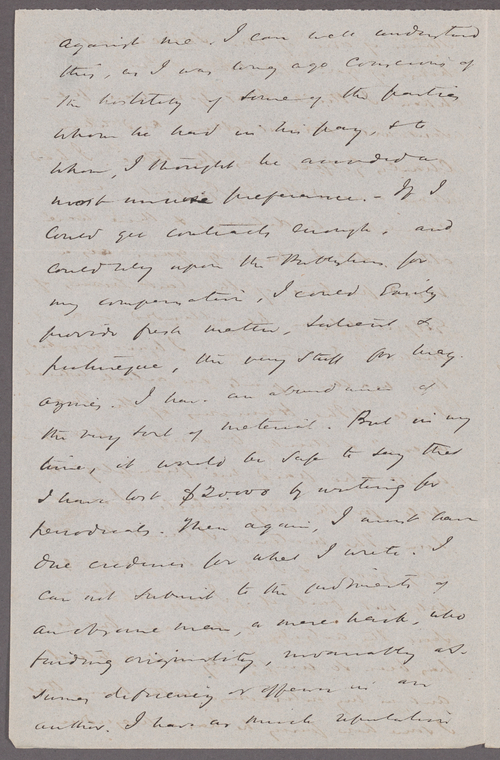 against me. I can well understand
this, as I was long ago conscious of
the hostility of some of the parties
whom he had in his pay, & to
whom, I thought he accorded a
most unwise preference. - If I
could get contracts enough, and
could rely upon the Publishers for
my compensation, I could easily
provide fresh matter, salient &
picturesque, the very stuff for mag-
azines. I have an abundance of
the very sort of material. But in my
time, it would be safe to say that
I have lost $20.000 by writing for
periodicals. Then again, I must have
due credence for what I write. I
can not submit to the judgments of
an obscure man, a mere hack, who
finding originality, invariably as-
sumes deficiency or offence in an
author. I have as much reputation